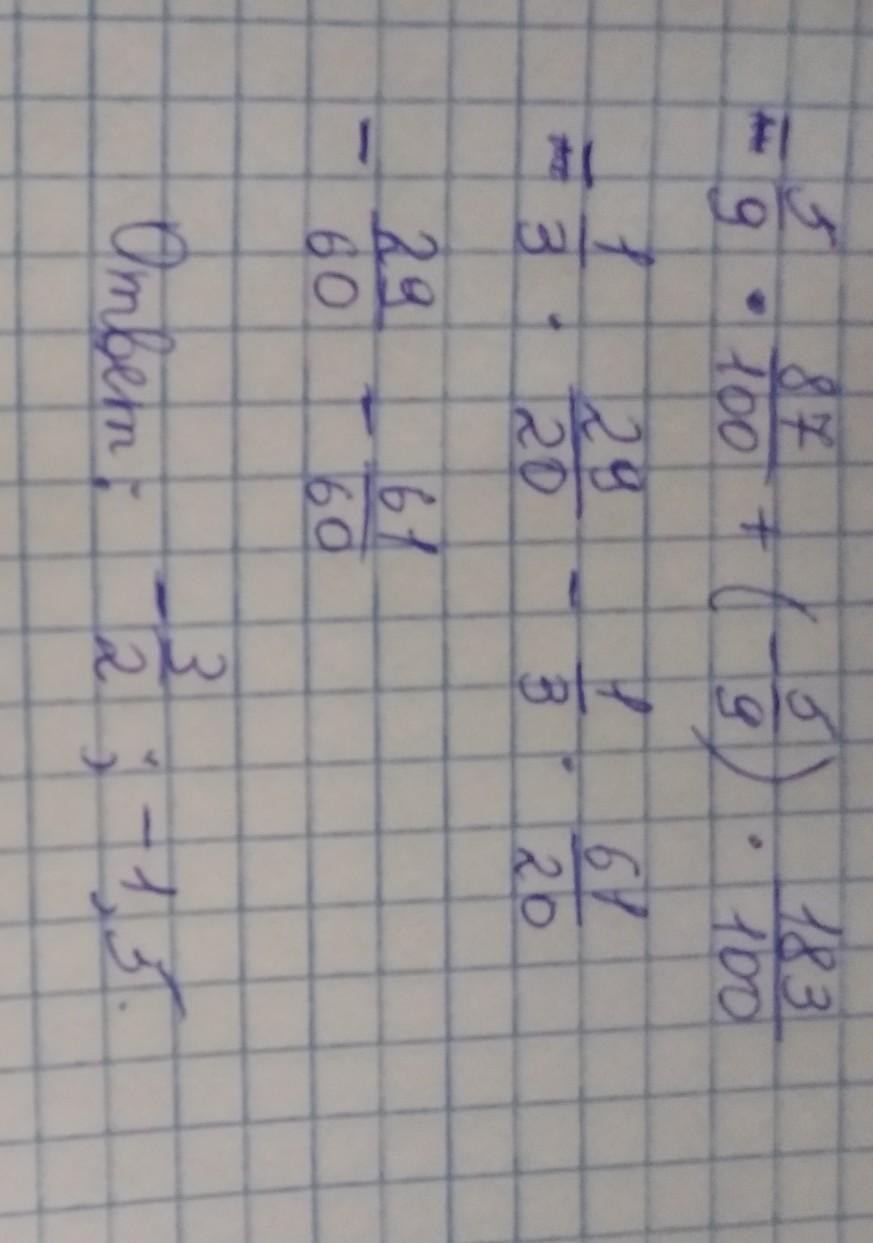 - 5/9 · 87/100 + (- 5/9) · 183/100
- 1/3 · 29/20 - 1/3 · 61/20
- 29/60 - 61/60
Ответ: - 3/2 ; - 1,5.